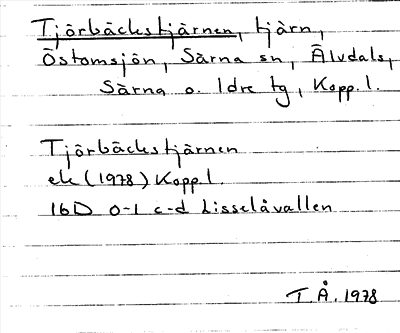 Tjörbäckstjärnen, tjärn,
Östomsjön, Särna sn, Älvdals,
Särna o. Idre tg, Kopp. l.
Tjörbäckstjärnen
ek (1978) Kopp l.
16D 0-1 c-d Lisselåvallen
T Å. 1978